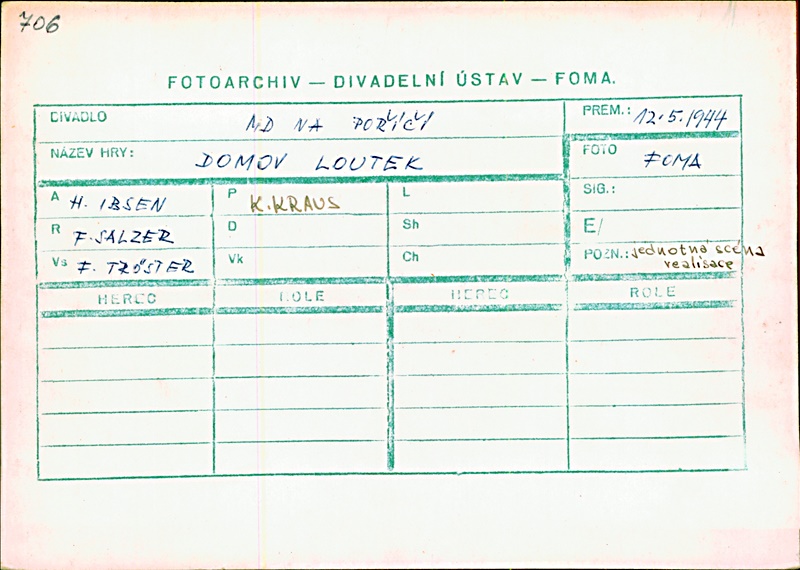 706
FOTOARCHIV — DIVADELNÍ ÚSTAV — FOMA.
DIVADLO MD NA POŘÍČÍ
PREM.: 12.5.1944
NÁZEV HRY: DOMOV LOUTEK
FOTO FOMA
A H. IBSEN
P K. KRAUS
L
SIG.:
R F. SALZER
D
Sh
E/
Vs F. TRÖSTER
Vk
Ch
POZN.: jednotná scéna
realisace
HEREC ROLE HEREC ROLE